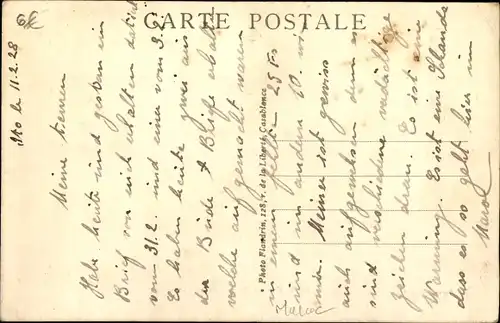 CARTE POSTALE
6€
den 11.2.28
Meine
Habe heute und gestern ein
Brief von euch erhalten datiert
vom 31.2. und einer vom 3.2
Es haben heute zwei aus
der Bude 4 Briefe erhalten
welche aufgemacht waren
in einem fehlte 25 Fs
und im andern 10. wo
nur. Meiner ist gewiss
auch aufgewesen denn es
sind verschiedene verdächtige
zeichen daran. Es ist eine
Warnung. Es ist eine Schande
dass es so geht hier in
Marok
Photo Flandrin, 128, r. de la Liberté, Casablanca
Maroc